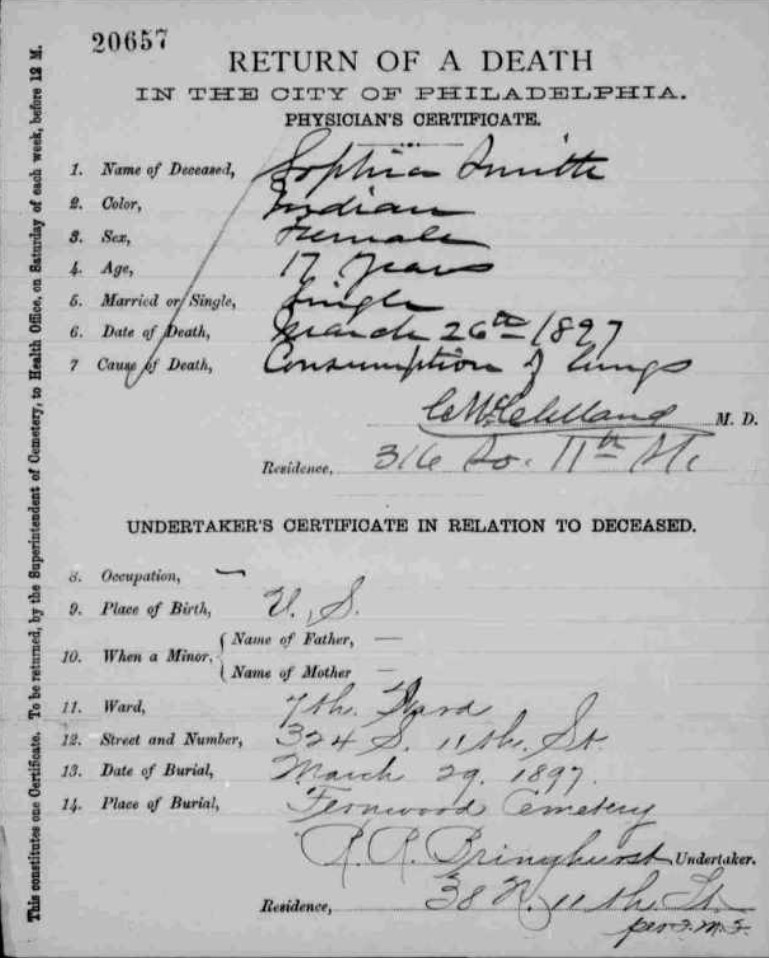 20657
RETURN OF A DEATH
IN THE CITY OF PHILADELPHIA.
PHYSICIAN'S CERTIFICATE.
1. Name of Deceased, Sophia Smith
2. Color, Indian
3. Sex, Female
4. Age, 17 Years
5. Married or Single, Single
6. Date of Death, March 26th 1897
7 Cause of Death, Consumption of lungs
C McClelland M. D.
Residence, 316 So. 11th St.
UNDERTAKER'S CERTIFICATE IN RELATION TO DECEASED.
8. Occupation, —
9. Place of Birth, U. S.
10. When a Minor, { Name of Father, —
Name of Mother —
11. Ward, 7th. Ward
12. Street and Number, 324 S. 11th. St.
13. Date of Burial, March 29. 1897.
14. Place of Burial, Fernwood Cemetery
R. R. Bringhurst Undertaker.
Residence, 38 N. 11th St.
per F. M. F.
This constitutes one Certificate. To be returned, by the Superintendent of Cemetery, to Health Office, on Saturday of each week, before 12 M.